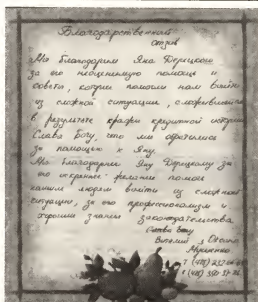 Благодарственный
отзыв
Мы благодарим Яна Дерецкого
за его неоценимую помощь и
советы, которые помогли нам выйти
из сложной ситуации, сложившейся
в результате кражи кредитной истории
Слава Богу, что мы обратились
за помощью к Яну.
Мы благодарны Яну Дерецкому за
его искреннее желание помочь
людям выйти из сложной
ситуации, за его профессионализм и
хорошее знание законодательства
Виталий и Оксана